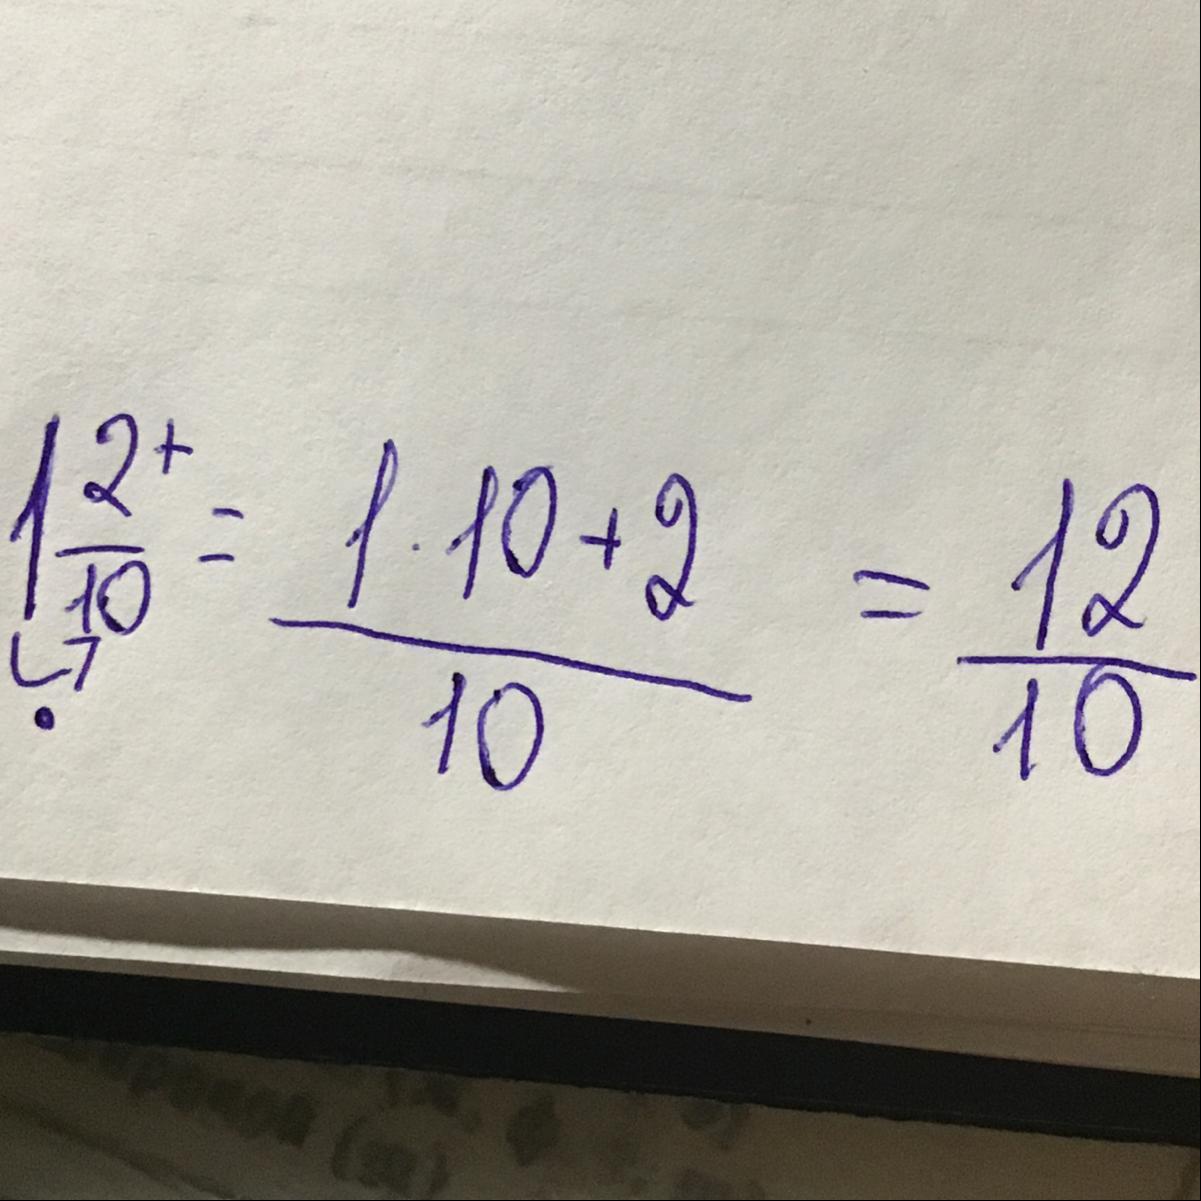 1 2/10 = (1 · 10 + 2)/10 = 12/10